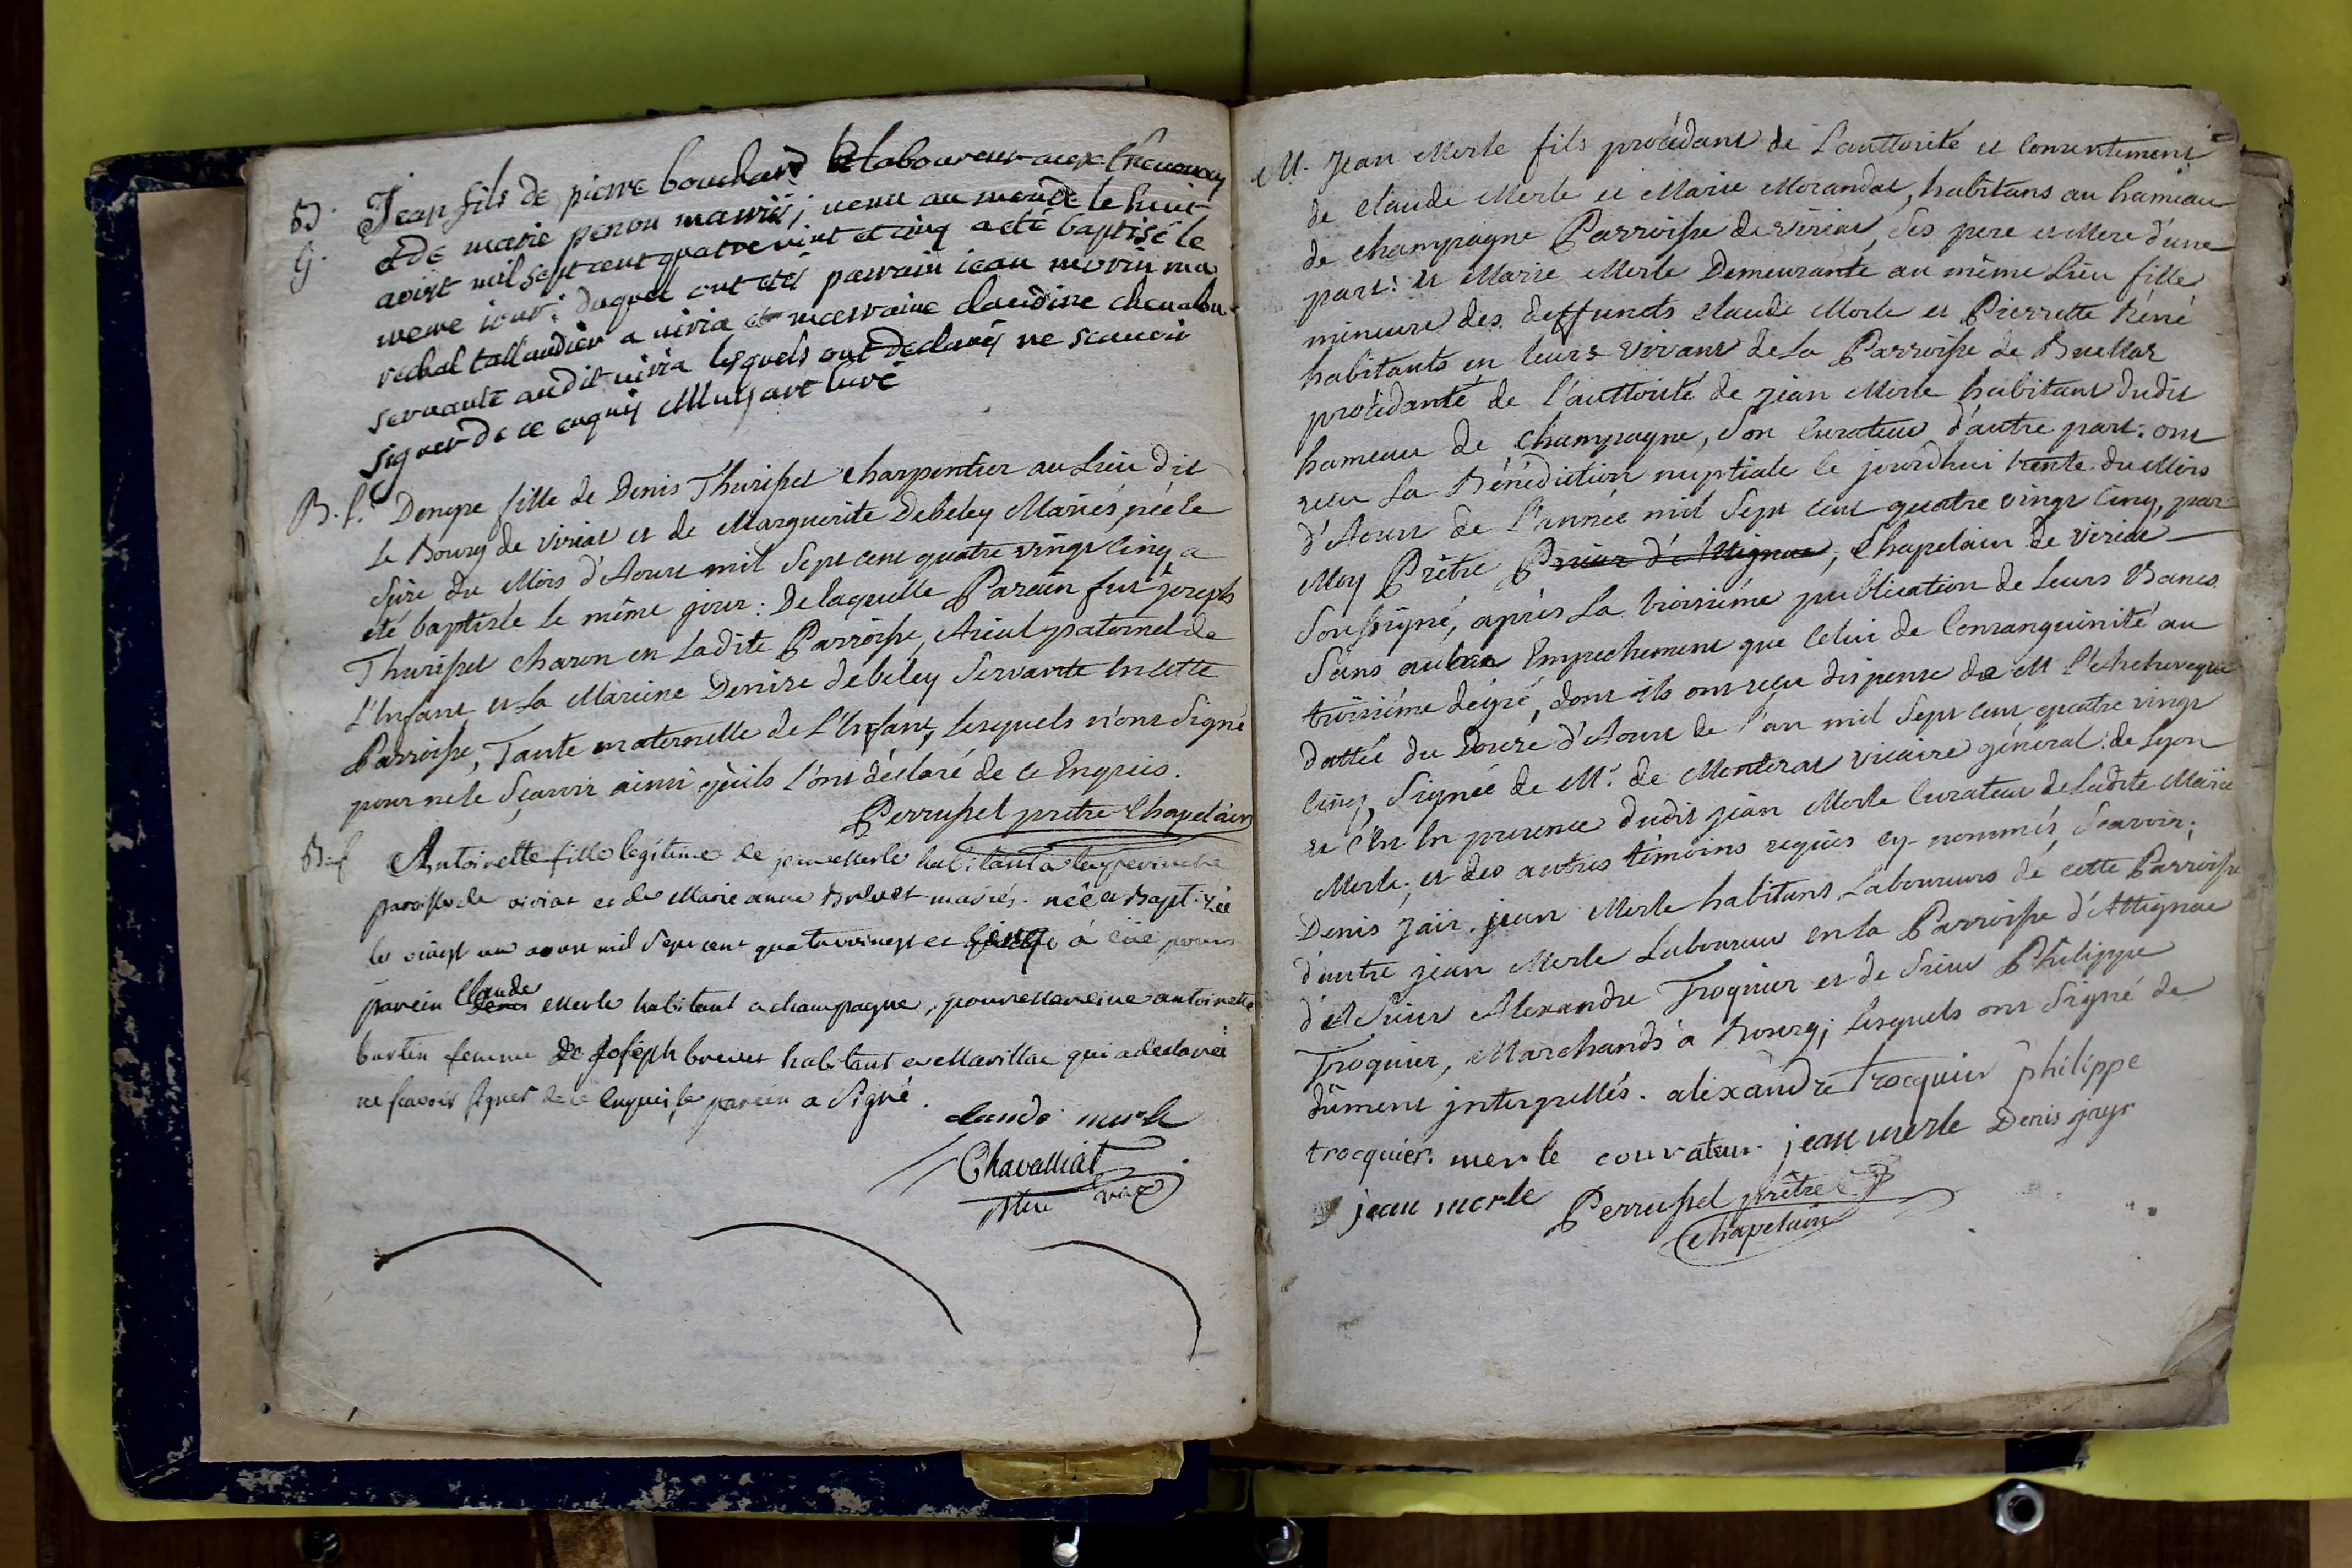 B. Jean fils de pierre bouchard laboureur aux
G. et de marie penon mariés; venu au monde le huit
aoust mil sept cent quatre vint et cinq a eté baptisé le
meme iour: duquel ont etés parrain iean morin ma
rechal tallandier a viria et marraine claudine
servante audit viria lesquels ont declarés ne scauoir
signer de ce enquis curé
B. f. Denyse fille de Denis Thurissel charpentier au Lieu dit
le Bourg de viriat et de Marguerite Debeley Mariés, née le
Seize du Mois d'Aoust mil Sept cent quatre vingt Cinq a
eté baptisée le même jour: De laquelle Parain fut joseph
Thurissel charon en Ladite Parroisse, Aieul paternel de
L'Enfant et La Mareine Denise debeley Servante En cette
Parroisse, Tante maternelle de L'Enfant, Lesquels n'ont Signé
pour ne le Sçavoir ainsi qu'ils l'ont déclaré de ce Enquis.
Perrussel prêtre Chapelain
B. f. Antoinette fille legitime de jean Merle habitant a
paroisse de viriat et de Marie anne Brevet mariés. née et Baptisée
le vingt un aoust mil Sept cent quatrevingt et cinq a eüe pour
parein Claude Merle habitant a champagne, pour Mareine antoinette
burtin femme de Joseph brevet habitant a Mavillac qui a declaré
ne scavoir signer de ce enquise le parein a Signé.
claude merle
Chavalliat
ptre vic
M. Jean Merle fils procédant de L'auttorité et Consentement
de Claude Merle et Marie Morandat, habitans au hameau
de champagne Parroisse de viriat, Ses pere et Mere d'une
part: et Marie Merle Demeurante au même Lieu fille
mineure des deffuncts Claude Merle et Pierrette Réné
habitants en leurs vivant de La Parroisse de Buellas
procédante de l'auttorité de jean Merle habitant dudit
hameau de Champagne, Son Curateur d'autre part: ont
reçu La Bénédiction nuptiale le jourdhui trente du Mois
d'Aoust de l'année mil Sept cent quatre vingt Cinq, par
Moy Prêtre Prieur d'Attignac, Chapelain de viriat
Soussigné, après La troisiéme publication de Leurs Bancs
Sans autre Empechement que Celui de Consanguinité au
troisiéme dégré, dont ils ont reçu dispense de M l'Archeveque
dattée du Douze d'Aoust de l'an mil Sept cent quatre vingt
Cinq, Signée de Mr. de Monterat vicaire général de Lyon
et C'En En presence dudit jean Merle Curateur de Ladite Marie
Merle; et des autres témoins requis cy-nommés, Scavoir;
Denis Jair. jean Merle habitans, Laboureurs de cette Parroisse
d'autre jean Merle Laboureur en La Parroisse d'Attignac
d'et Sieur Alexandre Troquier et de Sieur Philippe
Troquier, Marchands à Bourg; Lesquels ont Signé de
dûment interpellés. alexandre Trocquier philippe
trocquier. merle courateur. jean merle Denis jayr
jean merle Perrussel prêtre
Chapelain